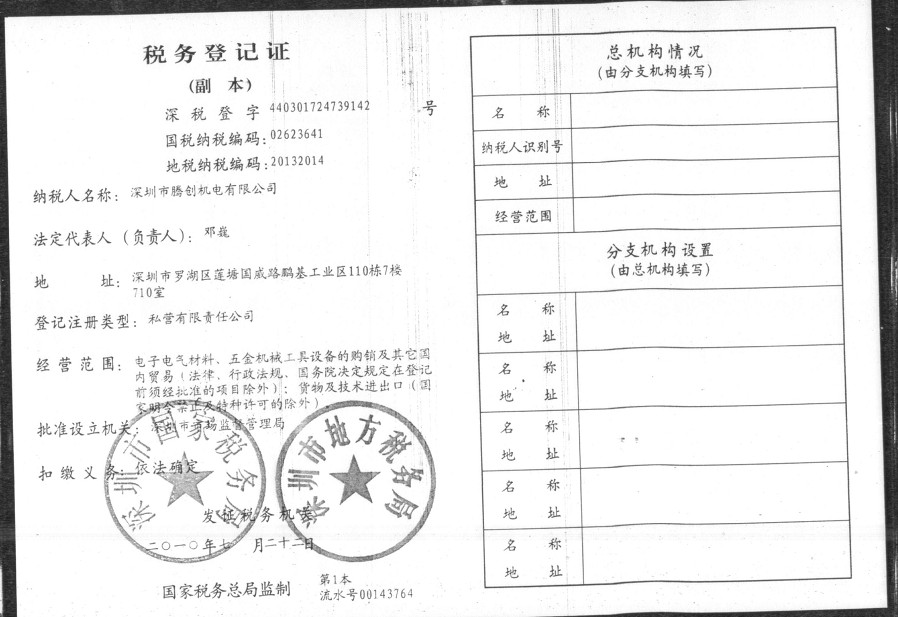 税务登记证
(副 本)
深税登字 440301724739142 号
国税纳税编码: 02623641
地税纳税编码: 20132014
纳税人名称: 深圳市腾创机电有限公司
法定代表人(负责人): 邓巍
地 址: 深圳市罗湖区莲塘国威路鹏基工业区110栋7楼
710室
登记注册类型: 私营有限责任公司
经营范围: 电子电气材料、五金机械工具设备的购销及其它国
内贸易(法律、行政法规、国务院决定规定在登记
前须经批准的项目除外);货物及技术进出口(国
家明令禁止及特种许可的除外)
批准设立机关: 深圳市市场监督管理局
扣缴义务: 依法确定
深圳市国家税务局
深圳市地方税务局
发证税务机关
二〇一〇年七 月二十二日
国家税务总局监制
第1本
流水号00143764
总机构情况
(由分支机构填写)
名 称
纳税人识别号
地 址
经营范围
分支机构设置
(由总机构填写)
名 称
地 址
名 称
地 址
名 称
地 址
名 称
地 址
名 称
地 址